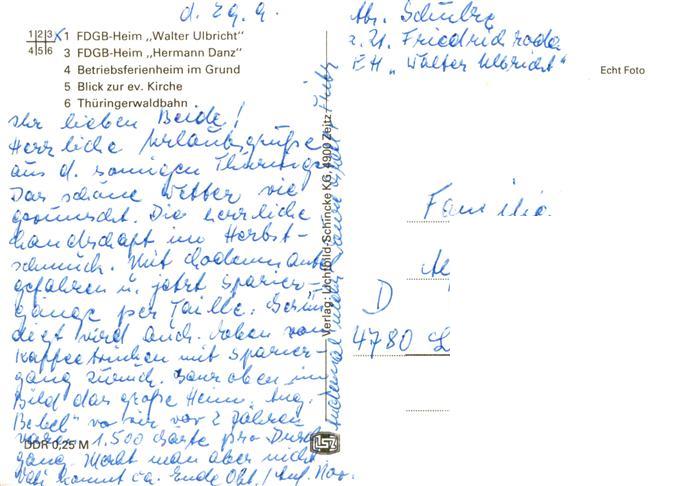 d. 29.9.
1 2 3 x 1 FDGB-Heim „Walter Ulbricht"
4 5 6 3 FDGB-Heim „Hermann Danz"
4 Betriebsferienheim im Grund
5 Blick zur ev. Kirche
6 Thüringerwaldbahn
Ihr lieben Beide!
Herrliche Urlaubsgrüße
aus d. sonnigen
Das schöne Wetter wie
gewünscht. Die herrliche
Landschaft im Herbst-
schmuck. Mit
gefahren u. jetzt Spazier-
gänge per
wird auch. Soben vom
Kaffeetrinken mit Spazier-
gang zurück. Ganz oben im
Bild das große Heim. Aug.
Bebel" wo wir vor 2 Jahren
waren. 1.500 Gäste pro Durch
gang. Merkt man aber nicht.
kommt ca. Ende Okt./Anf. Nov.
DDR 0,25 M
Verlag: Lichtbild-Schincke KG, 4900 Zeitz
lsz
Abs. Schulze
z. Zt. Friedrichroda
EH „Walter Ulbricht"
Echt Foto
Familie
D
4780 L